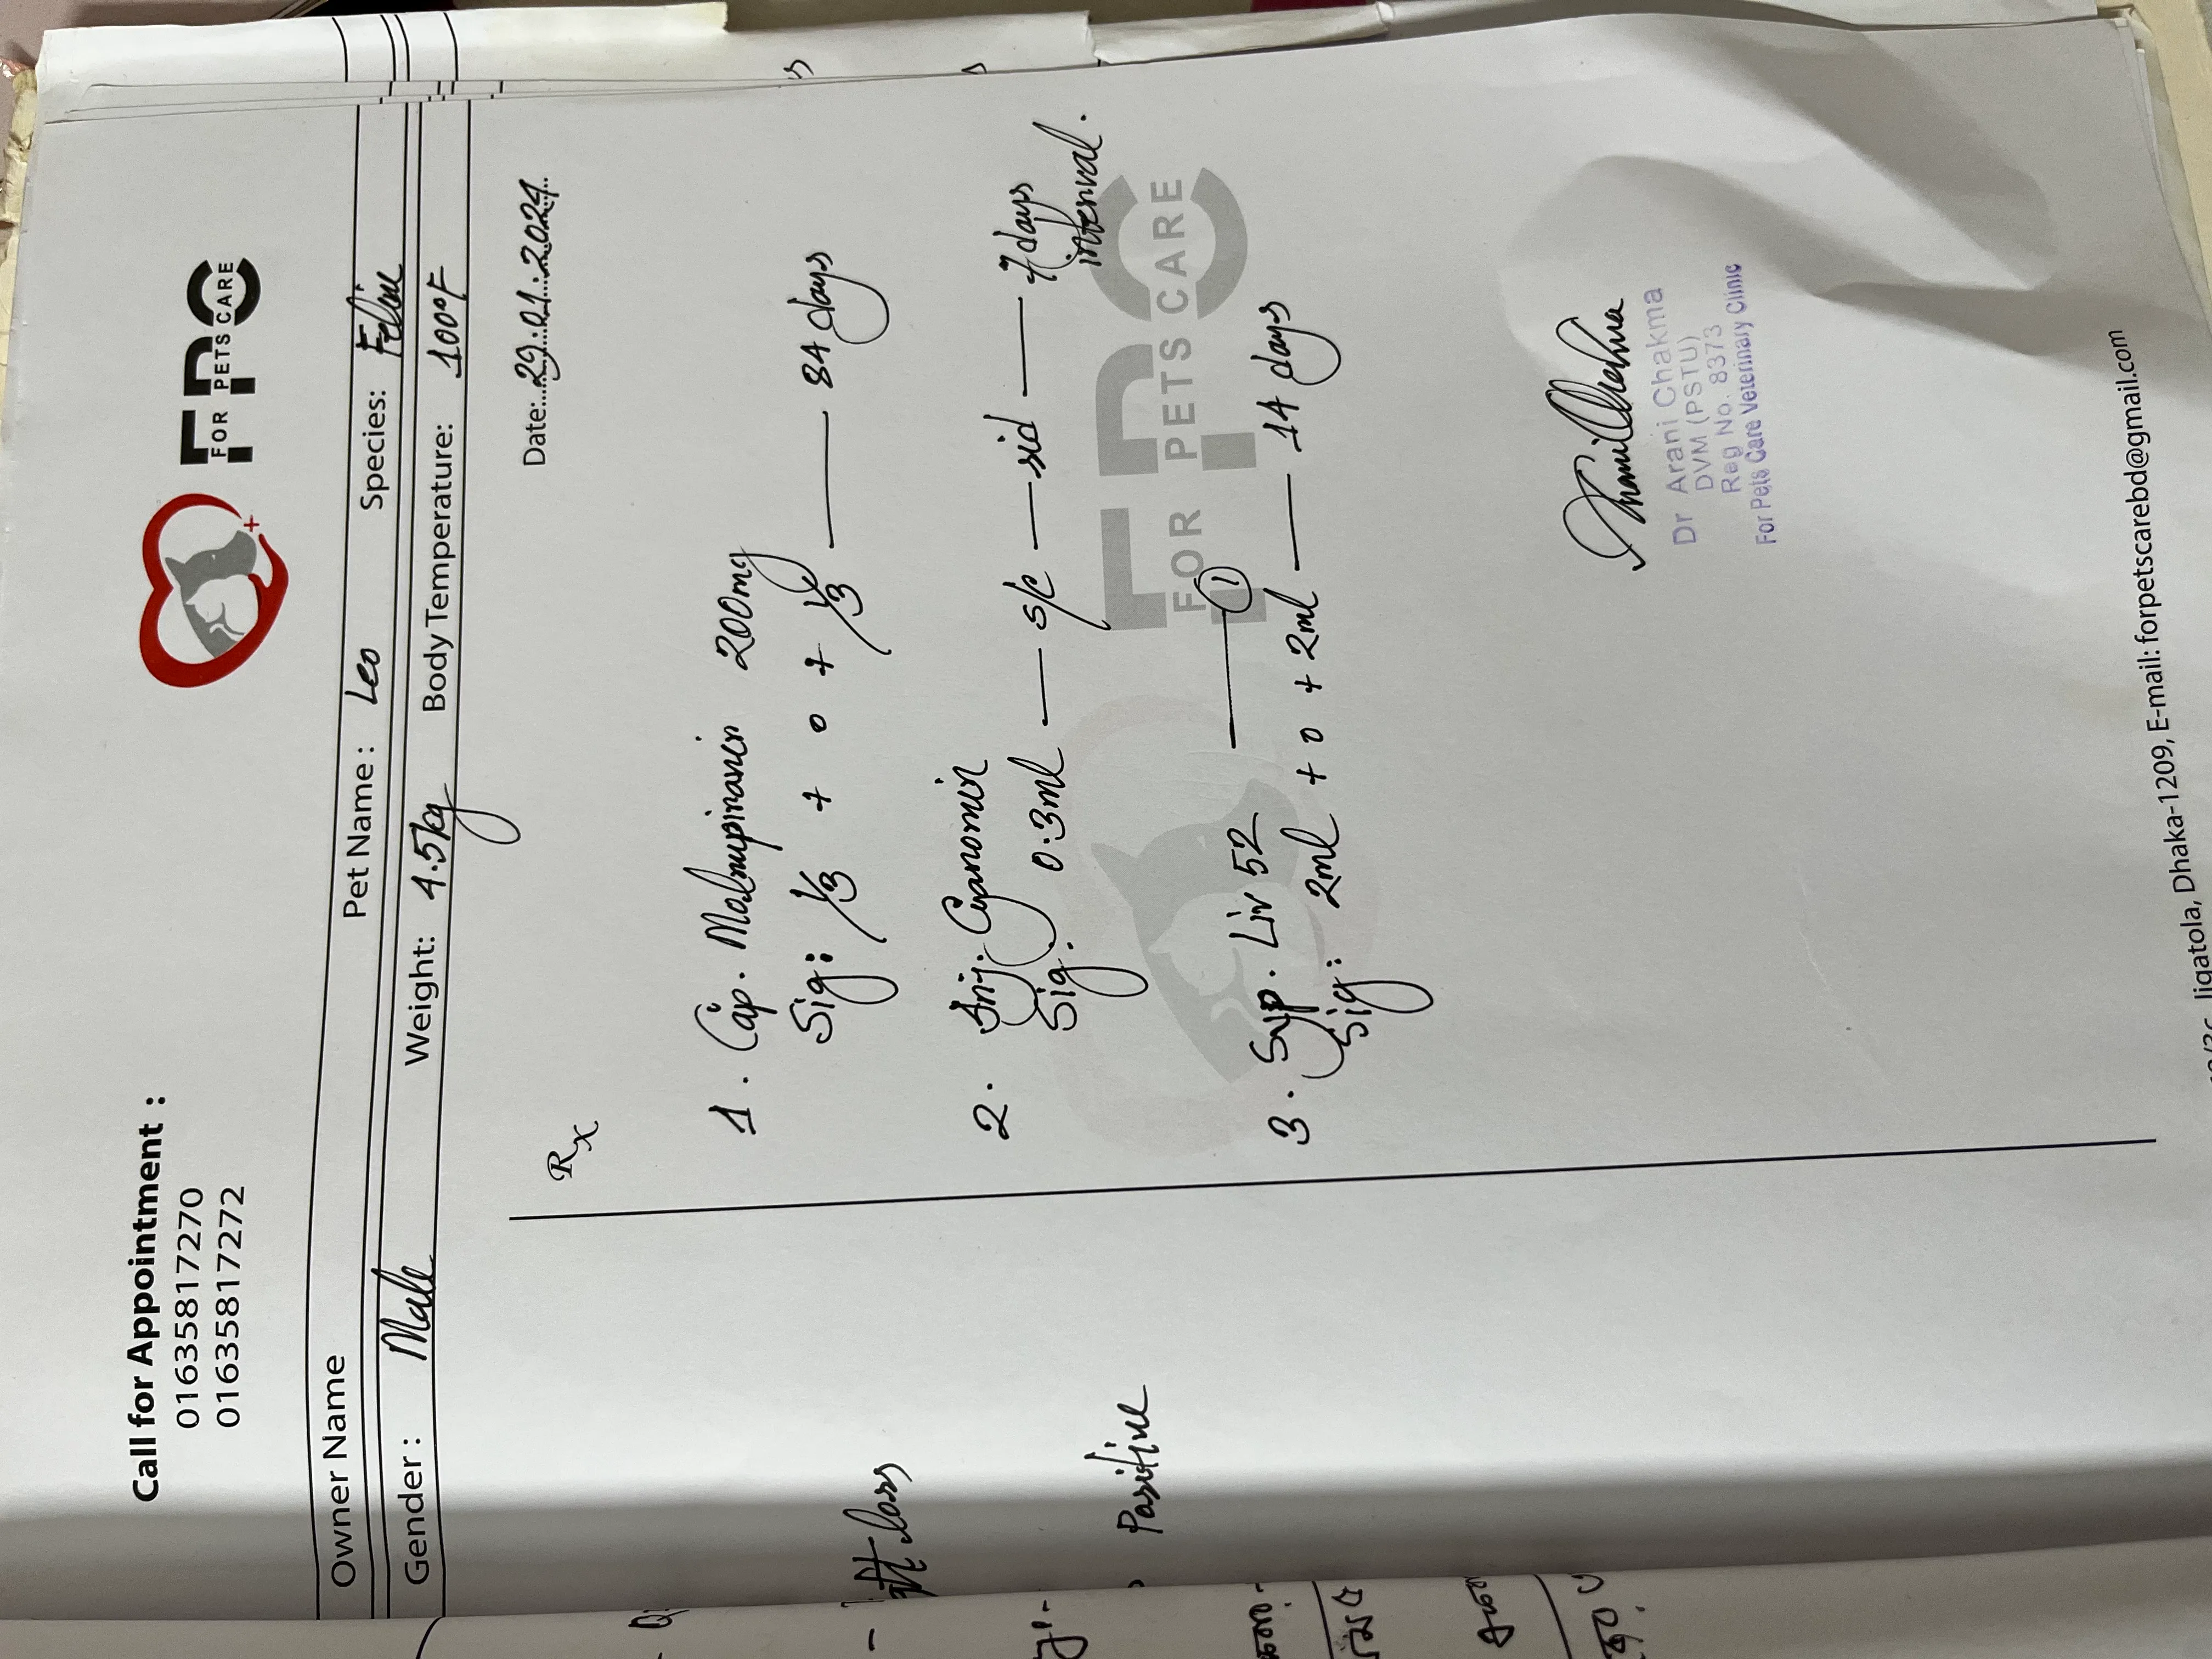 Call for Appointment :
01635817270
01635817272
FPC
FOR PETS CARE
Owner Name Pet Name : Leo Species: Feline
Gender : Male Weight: 4.5kg Body Temperature: 100°F
Date:...29.:.01.:.2024...
Rx
1. Cap. Molnupiravir 200mg
Sig: 1/3 + 0 + 1/3 — 84 days
2. Inj. Cyanomin
Sig. 0.3ml — s/c — sid — 7 days interval.
— 1
3. Syp. Liv 52
Sig: 2ml + 0 + 2ml — 14 days
loss
Positive
FOR PETS CARE
Dr Arani Chakma
DVM (PSTU)
Reg No. 8373
For Pets Care Veterinary Clinic
Jigatola, Dhaka-1209, E-mail: forpetscarebd@gmail.com